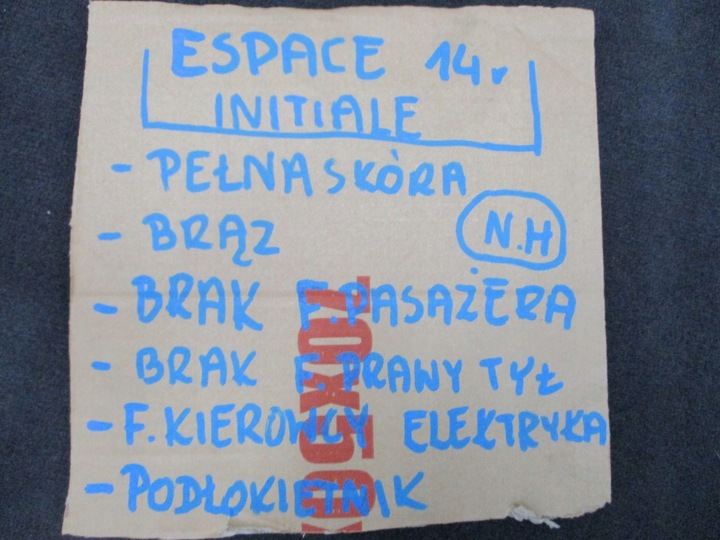 ESPACE 14r
INITIALE
- PEŁNA SKÓRA
N.H
- BRĄZ
- BRAK F. PASAŻERA
- BRAK F. PRAWY TYŁ
- F. KIEROWCY ELEKTRYKA
- PODŁOKIETNIK